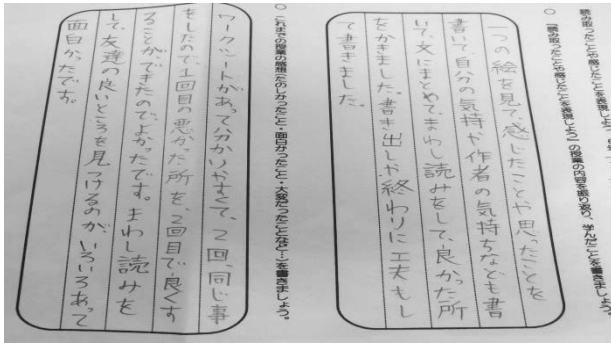 読み取ったことや感じたことを表現しよう
○ 「読み取ったことや感じたことを表現しよう」の授業の内容を振り返り、学んだことを書きましょう。
一つの絵を見て、感じたことや思ったことを
書いて、自分の気持や作者の気持ちなども書
いて、文にまとめて、まわし読みをして、良かった所
をかきました。書き出しや終わりに工夫もし
て書きました。
○ これまでの授業の感想(たのしかったこと・面白かったこと・大変だったことなど…)を書きましょう。
ワークシートがあって分かりやすくて、2回、同じ事
をしたので、1回目の悪かった所を、2回目で良くす
ることができたのでよかったです。まわし読みを
して、友達の良いところを見つけるのが、いろいろあって
面白かったです。